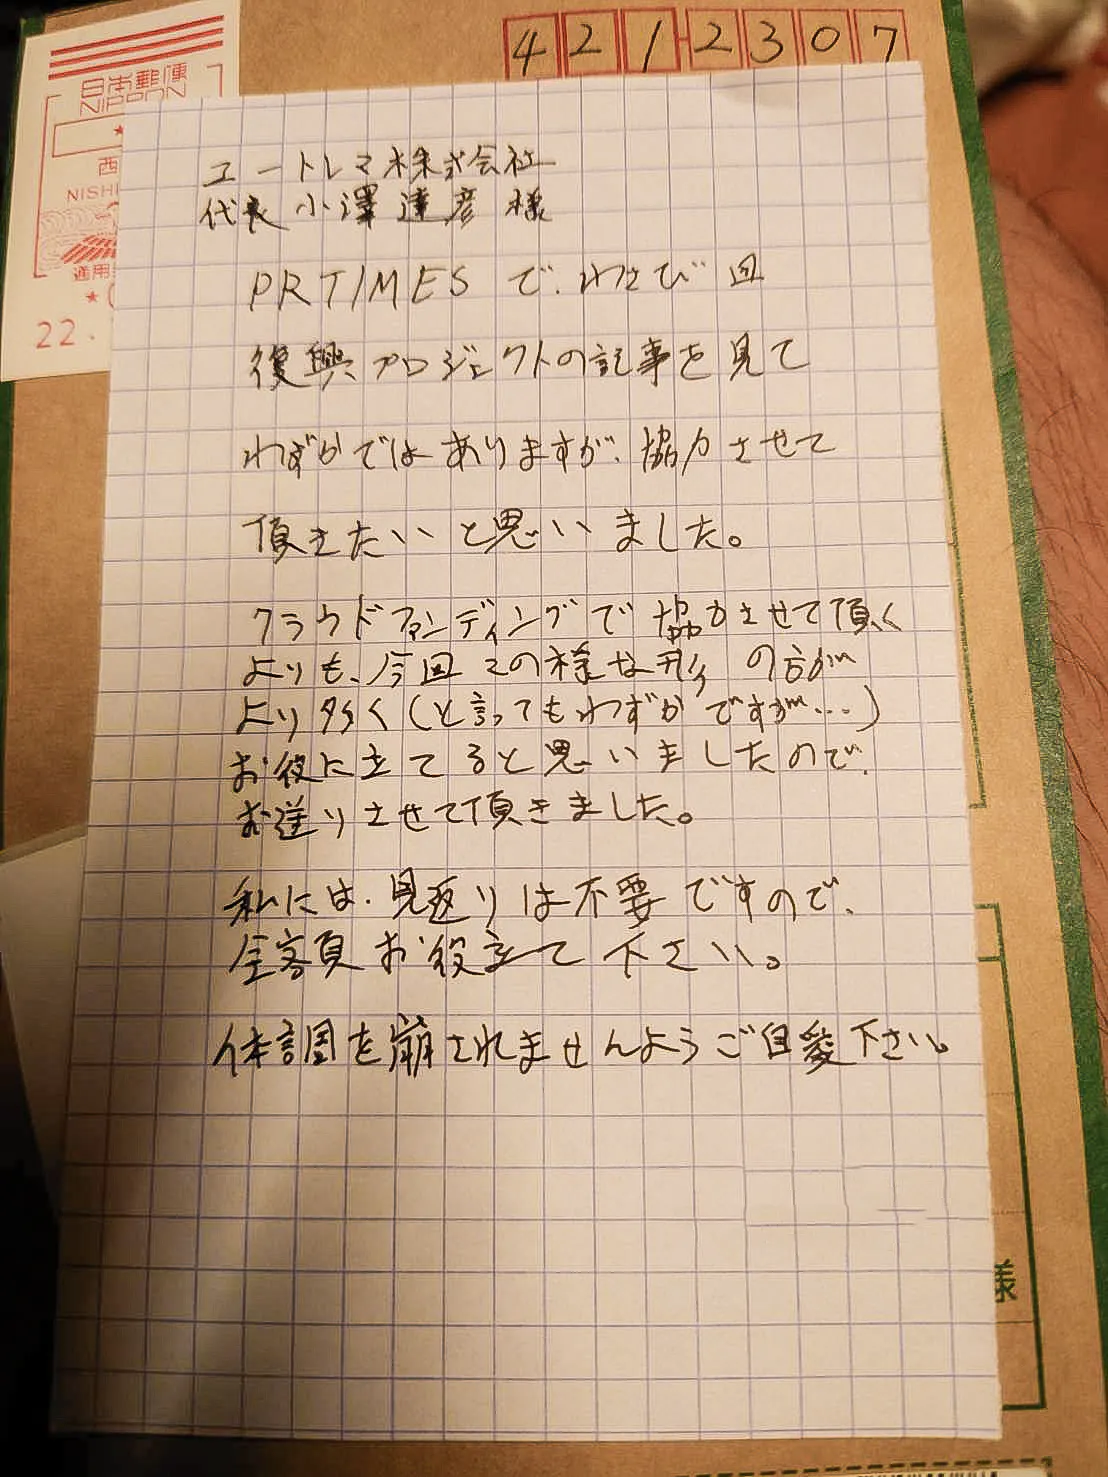 421-2307
日本郵便
NIPPON
西
NISHI
適用
22.
ユートレマ株式会社
代表 小澤達彦 様
PRTIMES で、わさび田
復興プロジェクトの記事を見て
わずかではありますが、協力させて
頂きたいと思いました。
クラウドファンディングで協力させて頂く
よりも、今回この様な形の方が
より多く(と言ってもわずかですが…)
お役に立てると思いましたので、
お送りさせて頂きました。
私には、見返りは不要ですので、
全額お役立て下さい。
体調を崩されませんようご自愛下さい。
様